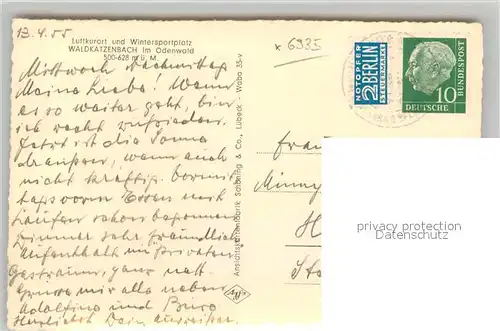 13.4.55
Luftkurort und Wintersportplatz
WALDKATZENBACH im Odenwald
500-628 m ü. M.
x 6935
Mittwoch Nachmittag
Meine Liebe! Wenn
es so weiter geht, bin
ich recht zufrieden.
Jetzt ist die Sonne
draußen, wenn auch
nicht kräftig. Vormit
tags vorm Essen mit
Laufen schon begonnen
Zimmer sehr freundlich
Aufenthalt im Privaten
Gastraum, ganz nett.
Grüsse mir alle neben
Adolfine und Büro
Herzlichst Dein Ausreißer.
Ansichtskartenfabrik Schöning & Co., Lübeck Waba 35-v
Agfa
NOTOPFER
2 BERLIN
STEUERMARKE
DEUTSCHE
BUNDESPOST
10
Frau
Minny
H
privacy protection
Datenschutz